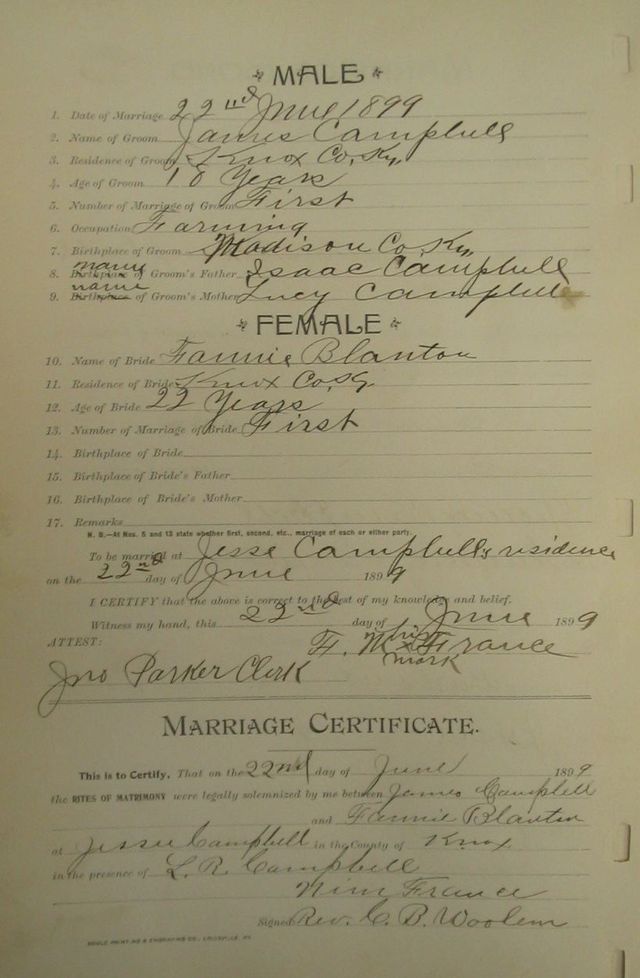 MALE
1. Date of Marriage 22nd June 1899
2. Name of Groom James Campbell
3. Residence of Groom Knox Co, Ky,
4. Age of Groom 18 Years
5. Number of Marriage of Groom First
6. Occupation Farming
7. Birthplace of Groom Madison Co, Ky,
name
8. Birthplace of Groom's Father Isaac Campbell
name
9. Birthplace of Groom's Mother Lucy Campbell
FEMALE
10. Name of Bride Fannie Blanton
11. Residence of Bride Knox Co,
12. Age of Bride 22 Years
13. Number of Marriage of Bride First
14. Birthplace of Bride
15. Birthplace of Bride's Father
16. Birthplace of Bride's Mother
17. Remarks
N. B.—At Nos. 5 and 13 state whether first, second, etc., marriage of each or either party.
To be married at Jesse Campbell's residence
on the 22nd day of June 1899
I CERTIFY that the above is correct to the best of my knowledge and belief.
Witness my hand, this 22nd day of June 1899
ATTEST: F. M. his x France
mark
Jno Parker Clerk
MARRIAGE CERTIFICATE.
This is to Certify, That on the 22nd day of June 1899
the RITES OF MATRIMONY were legally solemnized by me between James Campbell
and Fannie Blanton
at Jesse Campbell in the County of Knox
in the presence of L. R. Campbell
Nim France
Signed Rev. C. B. Woolem